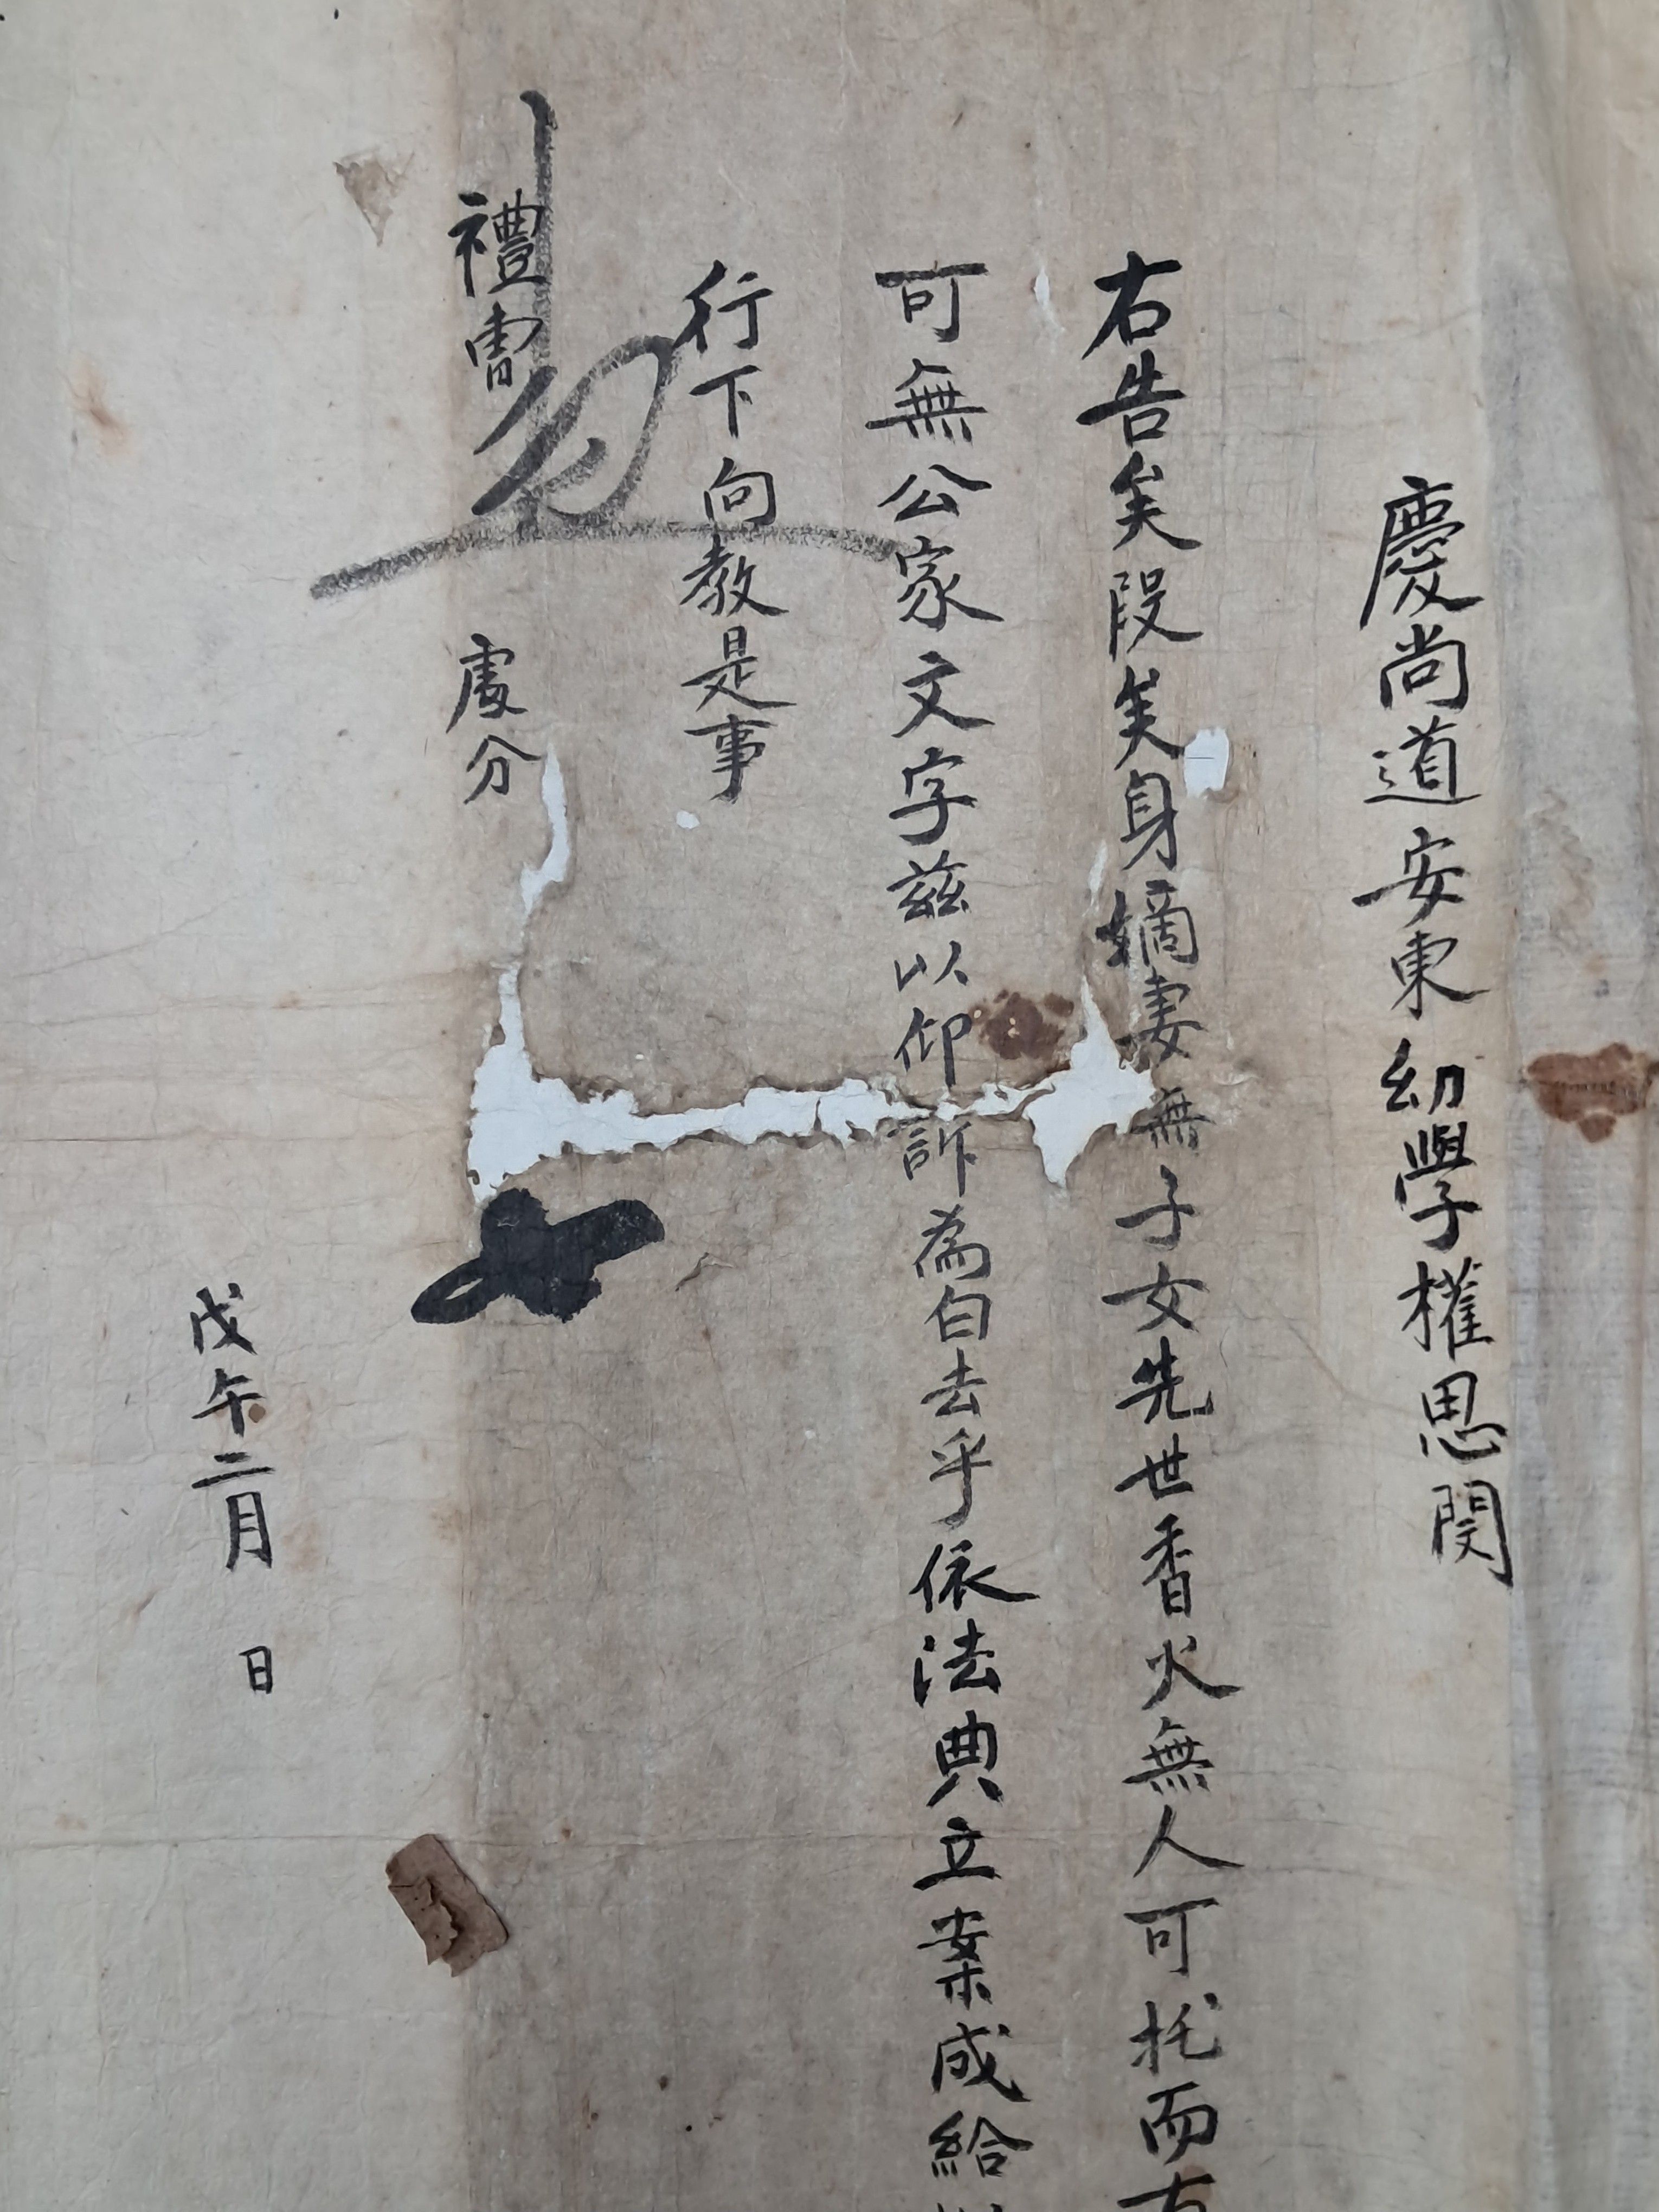 慶尚道安東幼學權思閔
右告矣段矣身嫡妻無子女先世香火無人可托而
可無公家文字玆以仰訴為白去乎依法典立案成給
行下向教是事
禮曺 處分
戊午二月 日